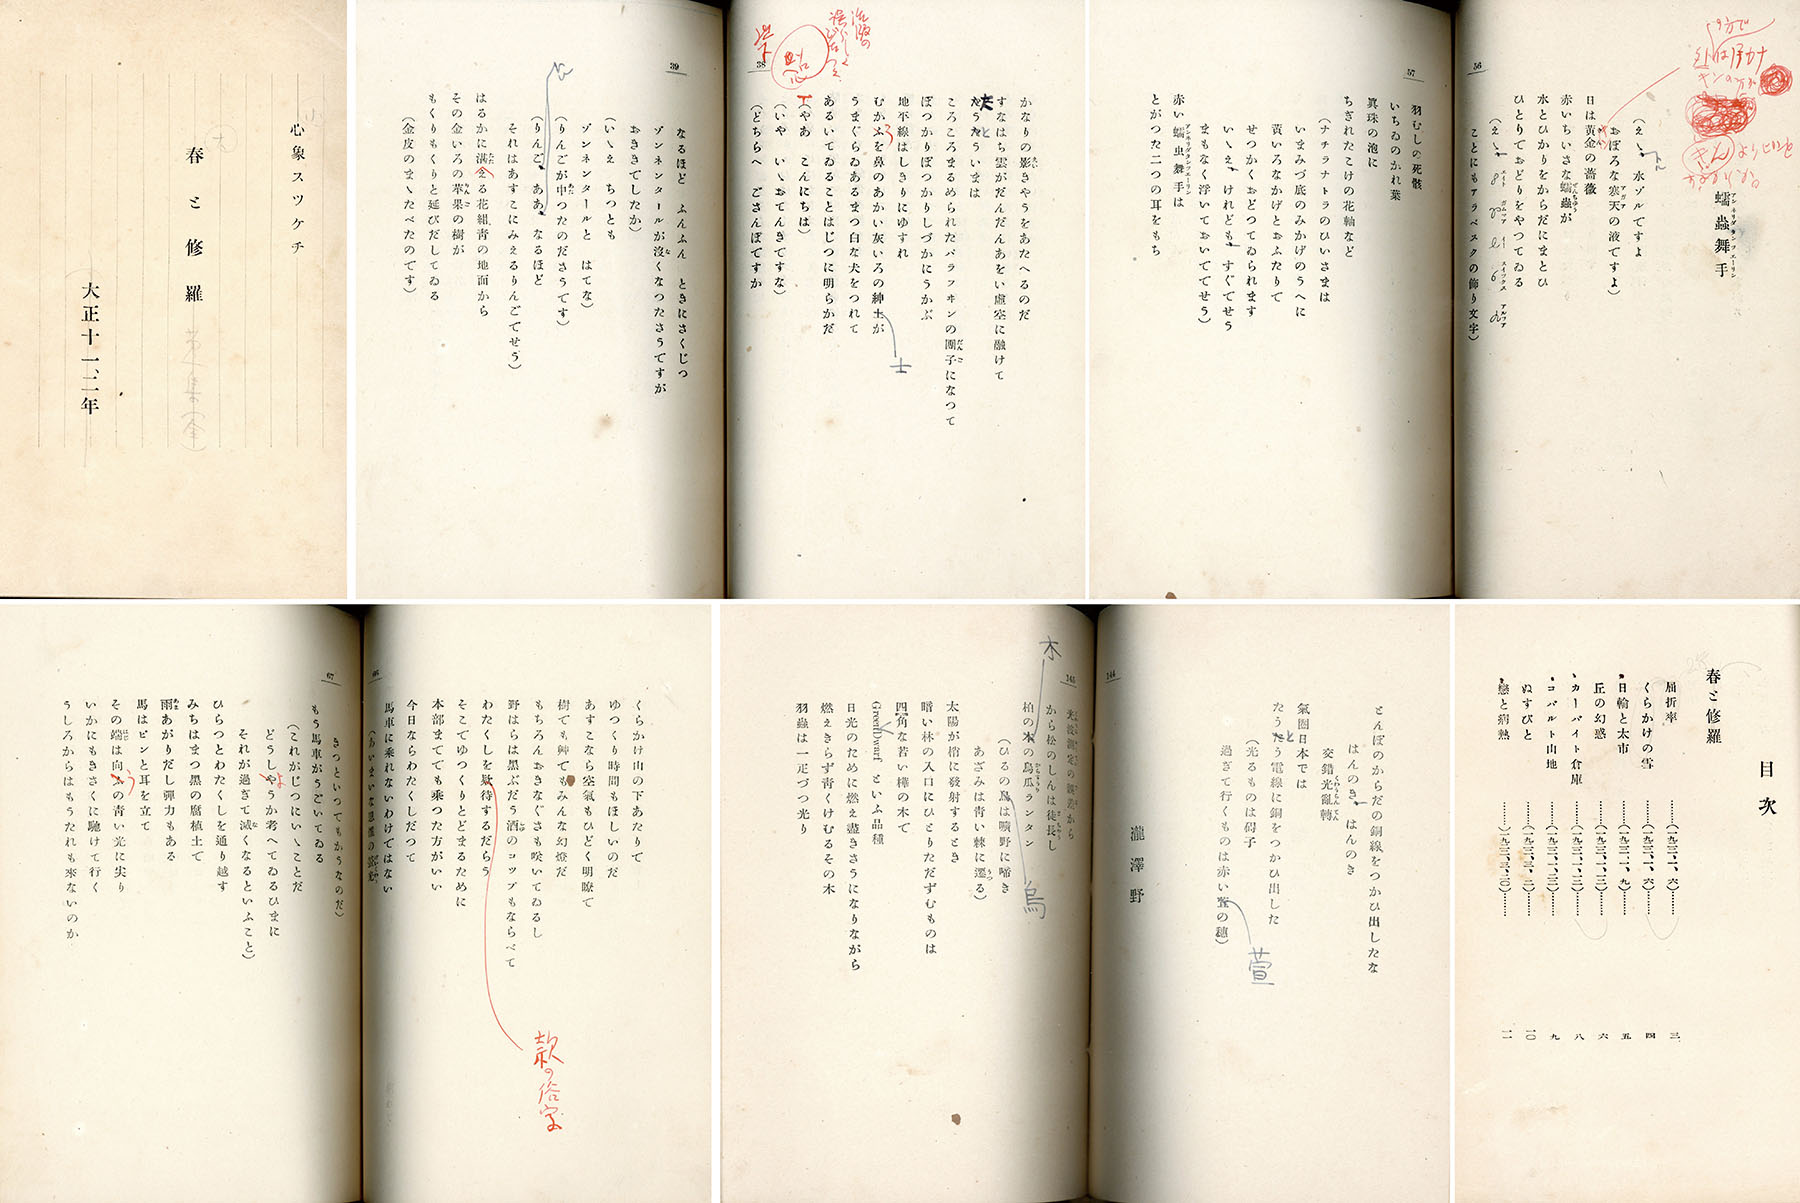 心象スツケチ
春と修羅
大正十一、二年
38
かなりの影きやうをあたへるのだ
すなはち雲がだんだんあをい虚空に融けて
たうたういまは
ころころまるめられたパラフヰンの團子になつて
ぽつかりぽつかりしづかにうかぶ
地平線はしきりにゆすれ
むかふを鼻のあかい灰いろの紳士が
うまぐらゐあるまつ白な犬をつれて
あるいてゐることはじつに明らかだ
(やあ こんにちは)
(いや いゝおてんきですな)
(どちらへ ごさんぽですか
士
39
なるほど ふんふん ときにさくじつ
ゾンネンタールが没くなつたさうですが
おききでしたか)
(いゝえ ちつとも
ゾンネンタールと はてな)
(りんごが中つたのださうです)
(りんご、ああ、なるほど
それはあすこにみえるりんごでせう)
はるかに湛える花紺青の地面から
その金いろの苹果の樹が
もくりもくりと延びだしてゐる
(金皮のまゝたべたのです)
56
蠕蟲舞手
アンネリダタンツエーリン
(えゝ、水ゾルですよ
おぼろな寒天の液ですよ)
日は黄金の薔薇
赤いちいさな蠕蟲が
水とひかりをからだにまとひ
ひとりでおどりをやつてゐる
(えゝ、8 γ e 6 α
エイト ガムマア イー スイツクス アルフア
ことにもアラベスクの飾り文字)
きん
57
羽むしの死骸
いちゐのかれ葉
眞珠の泡に
ちぎれたこけの花軸など
(ナチラナトラのひいさまは
いまみづ底のみかげのうへに
黄いろなかげとおふたりで
せつかくおどつてゐられます
いゝえ、けれども、すぐでせう
まもなく浮いておいででせう)
赤い蠕虫舞手は
アンネリダタンツエーリン
とがつた二つの耳をもち
66
くらかけ山の下あたりで
ゆつくり時間もほしいのだ
あすこなら空氣もひどく明瞭で
樹でも艸でもみんな幻燈だ
もちろんおきなぐさも咲いてゐるし
野はらは黒ぶだう酒のコツプもならべて
わたくしを歓待するだらう
そこでゆつくりとどまるために
本部まででも乘つた方がいい
今日ならわたくしだつて
馬車に乘れないわけではない
款の俗字
67
きつといつてもかうなのだ)
もう馬車がうごいてゐる
(これがじつにいゝことだ
どうしやうか考へてゐるひまに
それが過ぎて滅くなるといふこと)
ひらつとわたくしを通り越す
みちはまつ黒の腐植土で
雨あがりだし彈力もある
馬はピンと耳を立て
その端は向ふの靑い光に尖り
いかにもきさくに馳けて行く
うしろからはもうたれも來ないのか
144
とんぼのからだの銅線をつかひ出したな
はんのき、はんのき
交錯光亂轉
氣圏日本では
たうたう電線に銅をつかひ出した
(光るものは碍子
過ぎて行くものは赤い萱の穗)
萱
瀧澤野
145
光波測定の誤差から
から松のしんは徒長し
柏の木の烏瓜ランタン
(ひるの鳥は曠野に啼き
あざみは靑い棘に遷る)
太陽が梢に發射するとき
暗い林の入口にひとりたたずむものは
四角な若い樺の木で
GreenDwarf といふ品種
日光のために燃え盡きさうになりながら
燃えきらず靑くけむるその木
羽蟲は一疋づつ光り
木
烏
目次
春と修羅
屈折率 ……(一九二二、一、六)…… 三
くらかけの雪 ……(一九二二、一、六)…… 四
日輪と太市 ……(一九二二、一、九)…… 五
丘の幻惑 ……(一九二二、一、一二)…… 六
カーバイト倉庫 ……(一九二二、一、一二)…… 八
コバルト山地 ……(一九二二、一、二二)…… 九
ぬすびと ……(一九二二、三、二)…… 一〇
戀と病熱 ……(一九二二、三、二〇)…… 一一